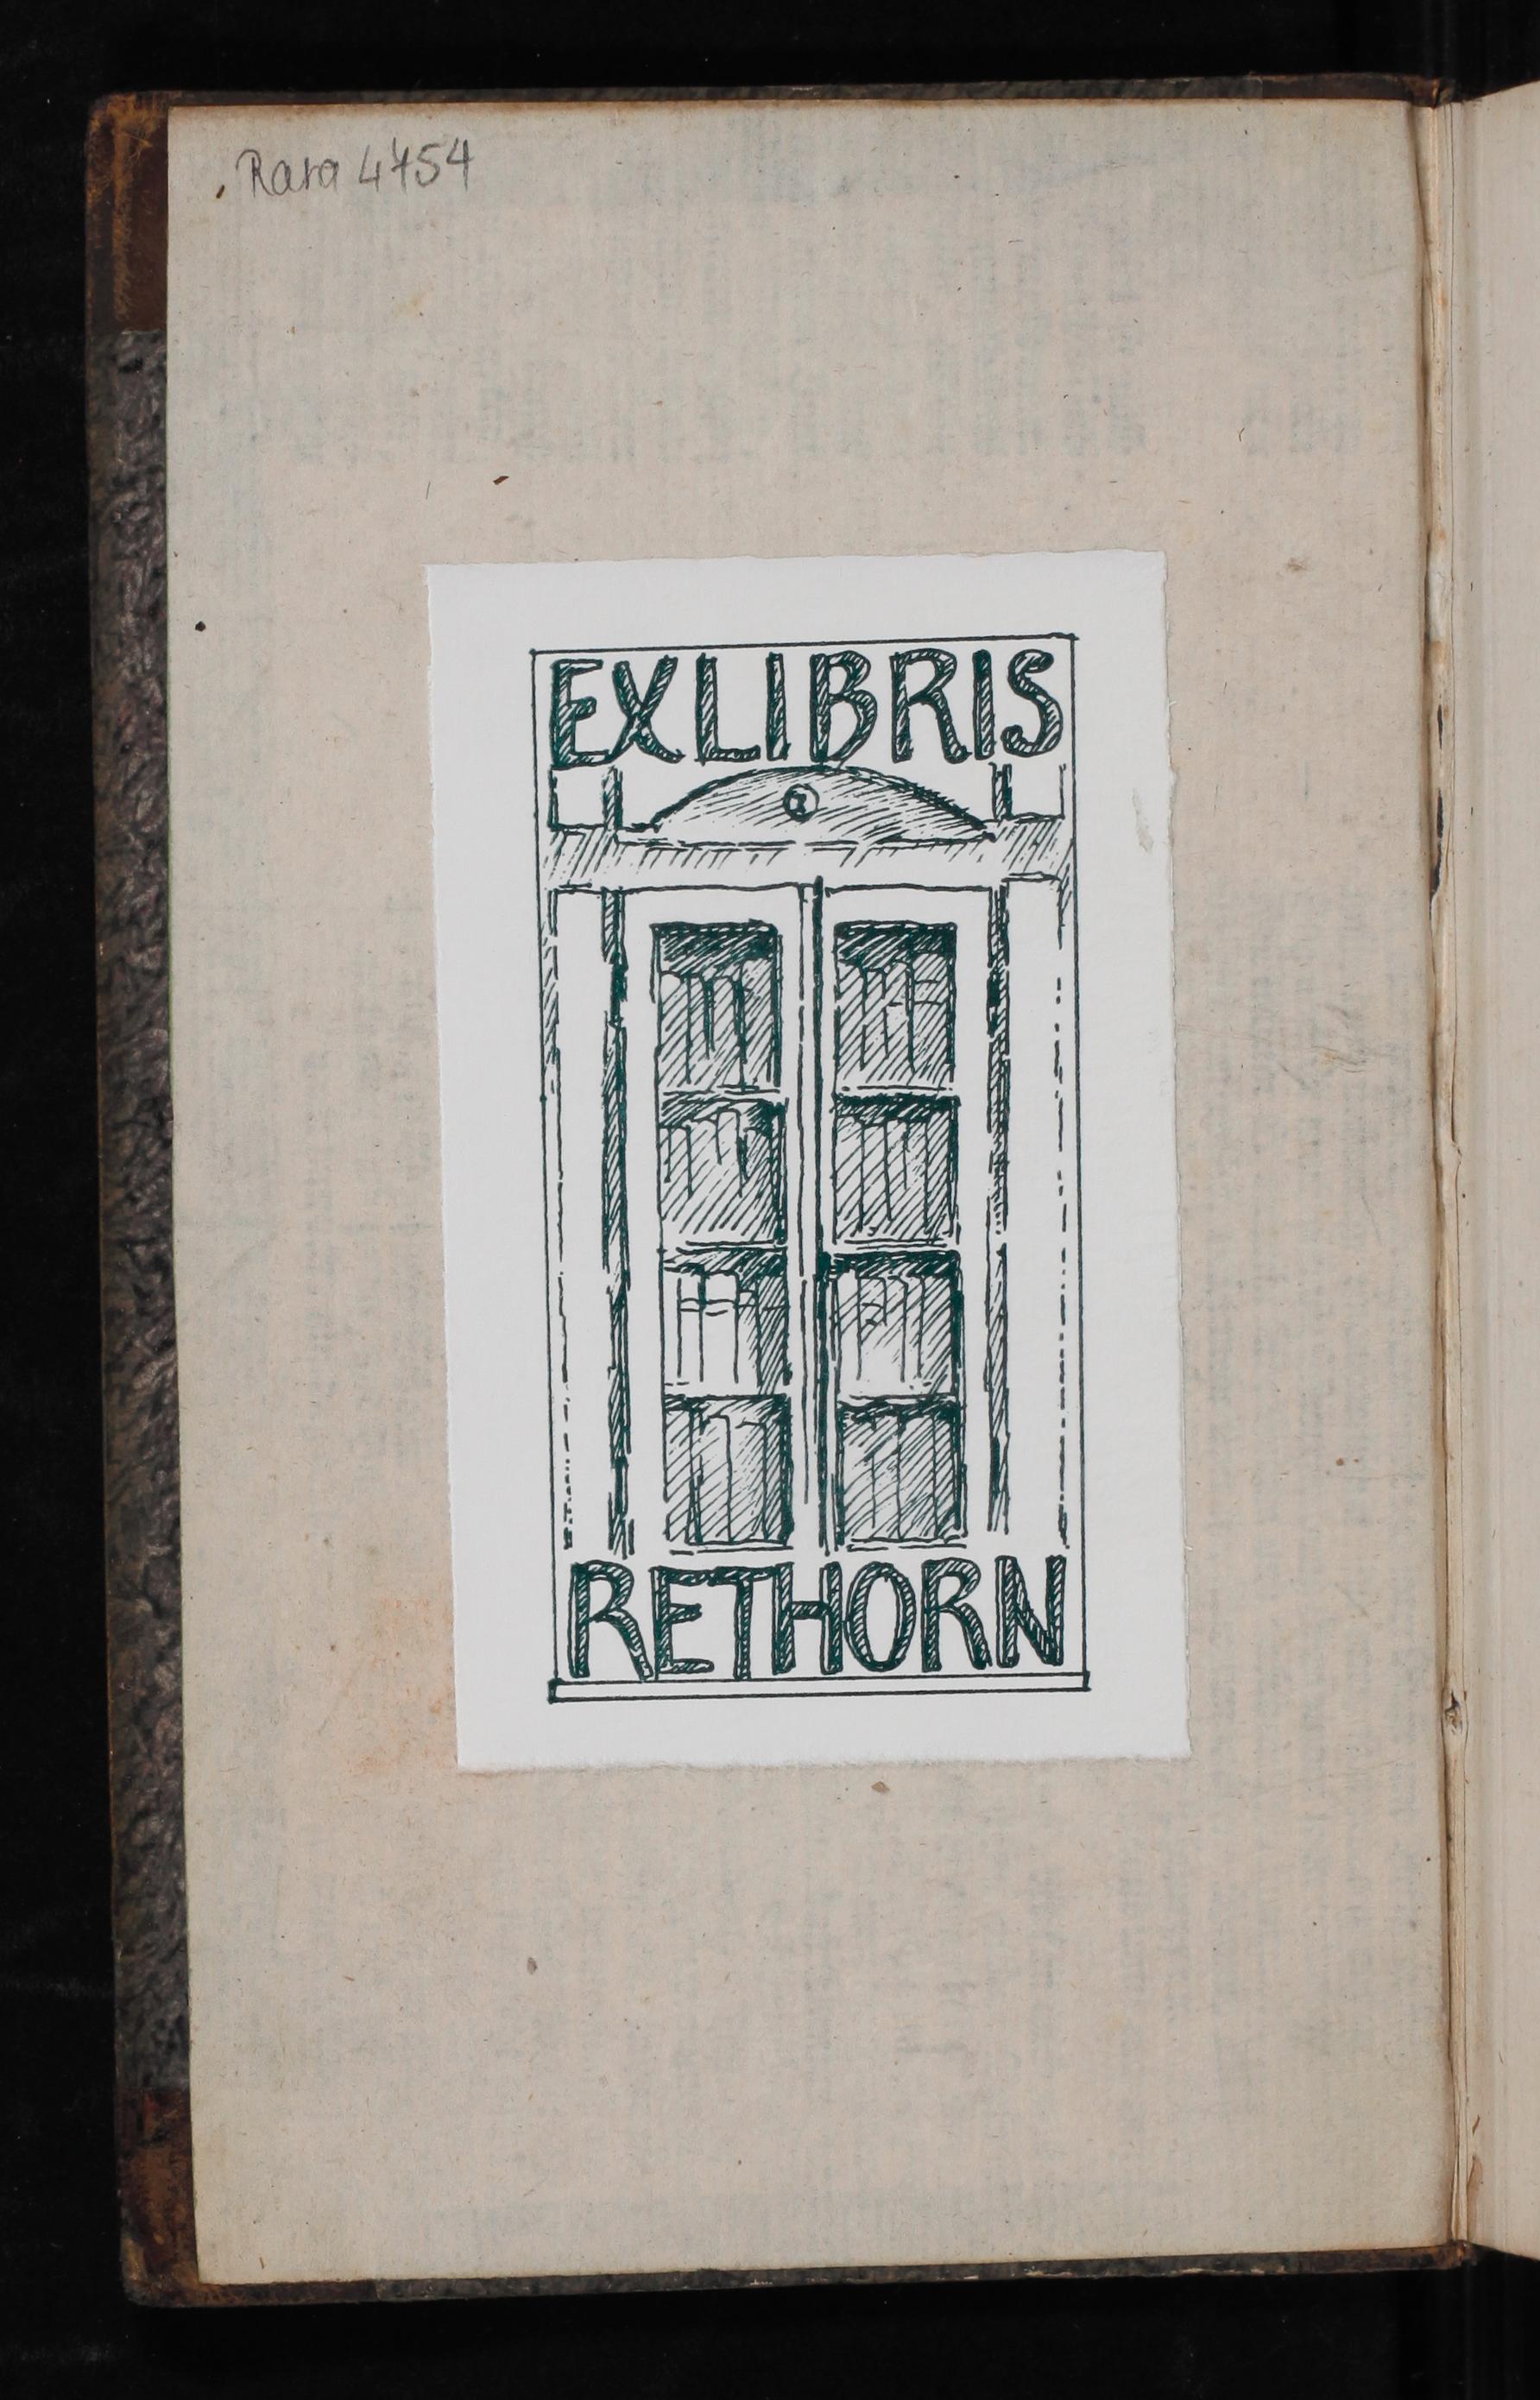 Rara 4754
EXLIBRIS
R
RETHORN